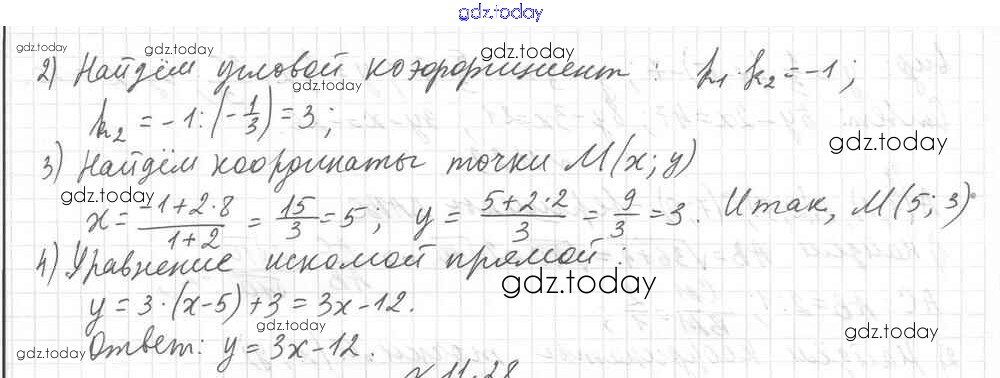 gdz.today
2) Найдём угловой коэффициент : k₁·k₂ = -1;
k₂ = -1:(-1/3) = 3;
3) Найдём координаты точки M(x; y)
x = (-1+2·8)/(1+2) = 15/3 = 5; y = (5+2·2)/3 = 9/3 = 3. Итак, M(5; 3).
4) Уравнение искомой прямой :
y = 3·(x-5)+3 = 3x-12.
Ответ: y = 3x-12.
N 11.28
gdz.today
gdz.today
gdz.today
gdz.today
gdz.today
gdz.today
gdz.today
gdz.today
gdz.today
gdz.today